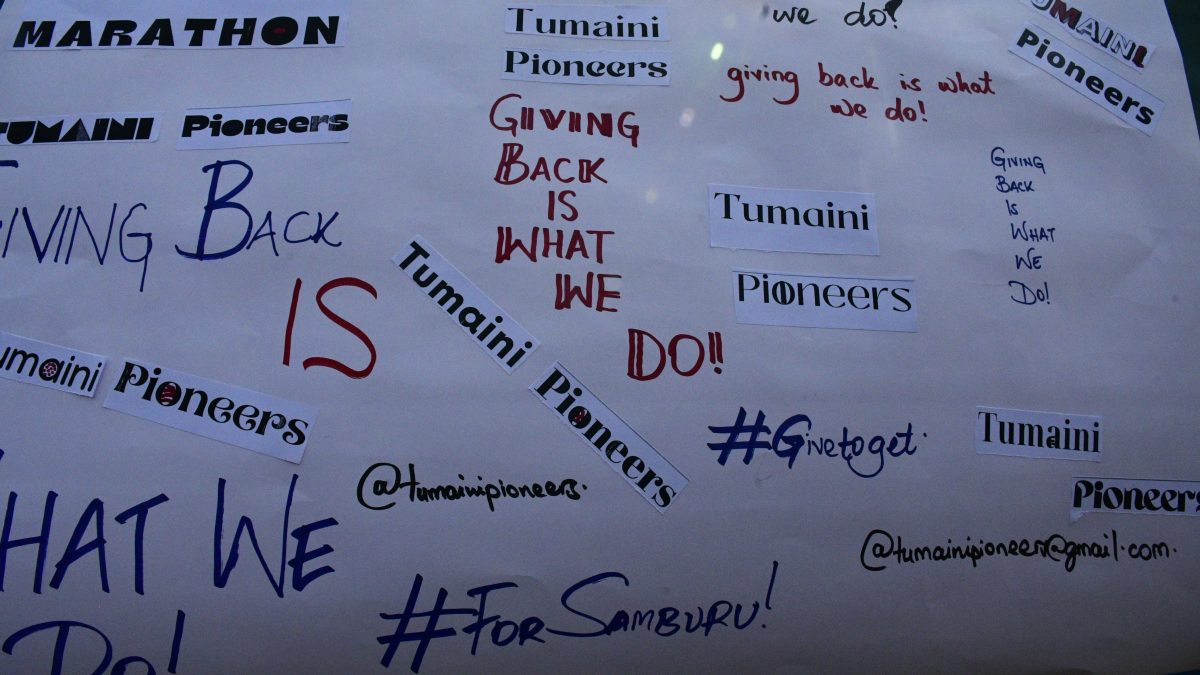 MARATHON
Tumaini
Pioneers
we do!
giving back is what
we do!
TUMAINI
Pioneers
TUMAINI
Pioneers
GIVING
BACK
IS
WHAT
WE
DO!!
GIVING BACK
IS
Tumaini
Pioneers
GIVING
BACK
IS
WHAT
WE
DO!
Tumaini
Pioneers
umaini
Pioneers
#Givetoget.
Tumaini
Pioneers
@tumainipioneers.
@tumainipioneers@gmail.com.
HAT WE
DO!
#FORSAMBURU!